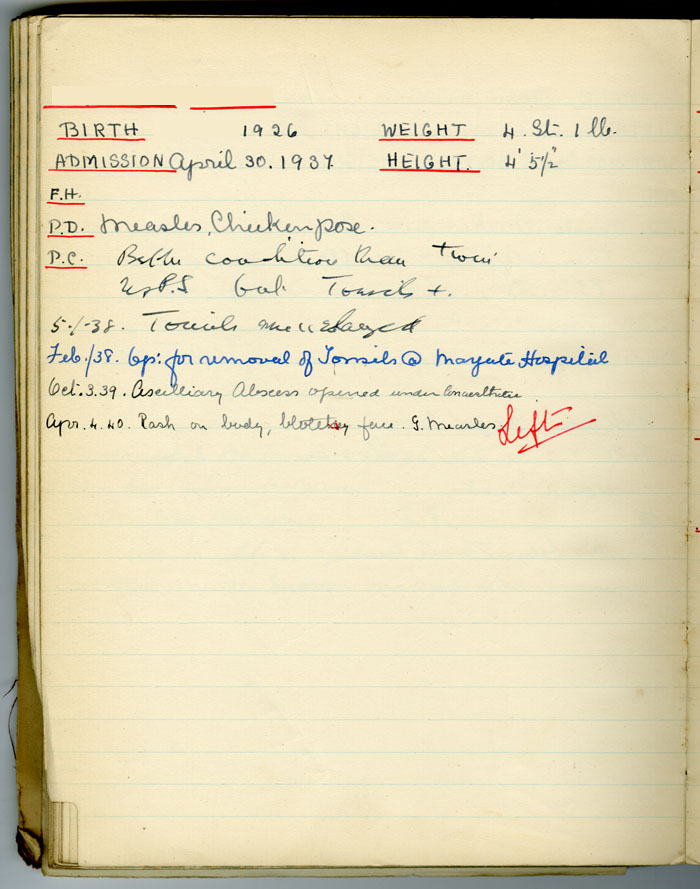 BIRTH 1926 WEIGHT 4. St. 1 lb.
ADMISSION April 30. 1937 HEIGHT. 4' 5½"
F.H.
P.D. Measles, Chickenpose.
P.C. Better condition than twin
Tonsils +.
5-1-38. Tonsils enlarged
Feb./38. Op: for removal of Tonsils @ Margate Hospital
Oct. 3. 39. Abscess opened under
Apr. 4. 40. Rash on body, blotchy face. G. Measles. Left